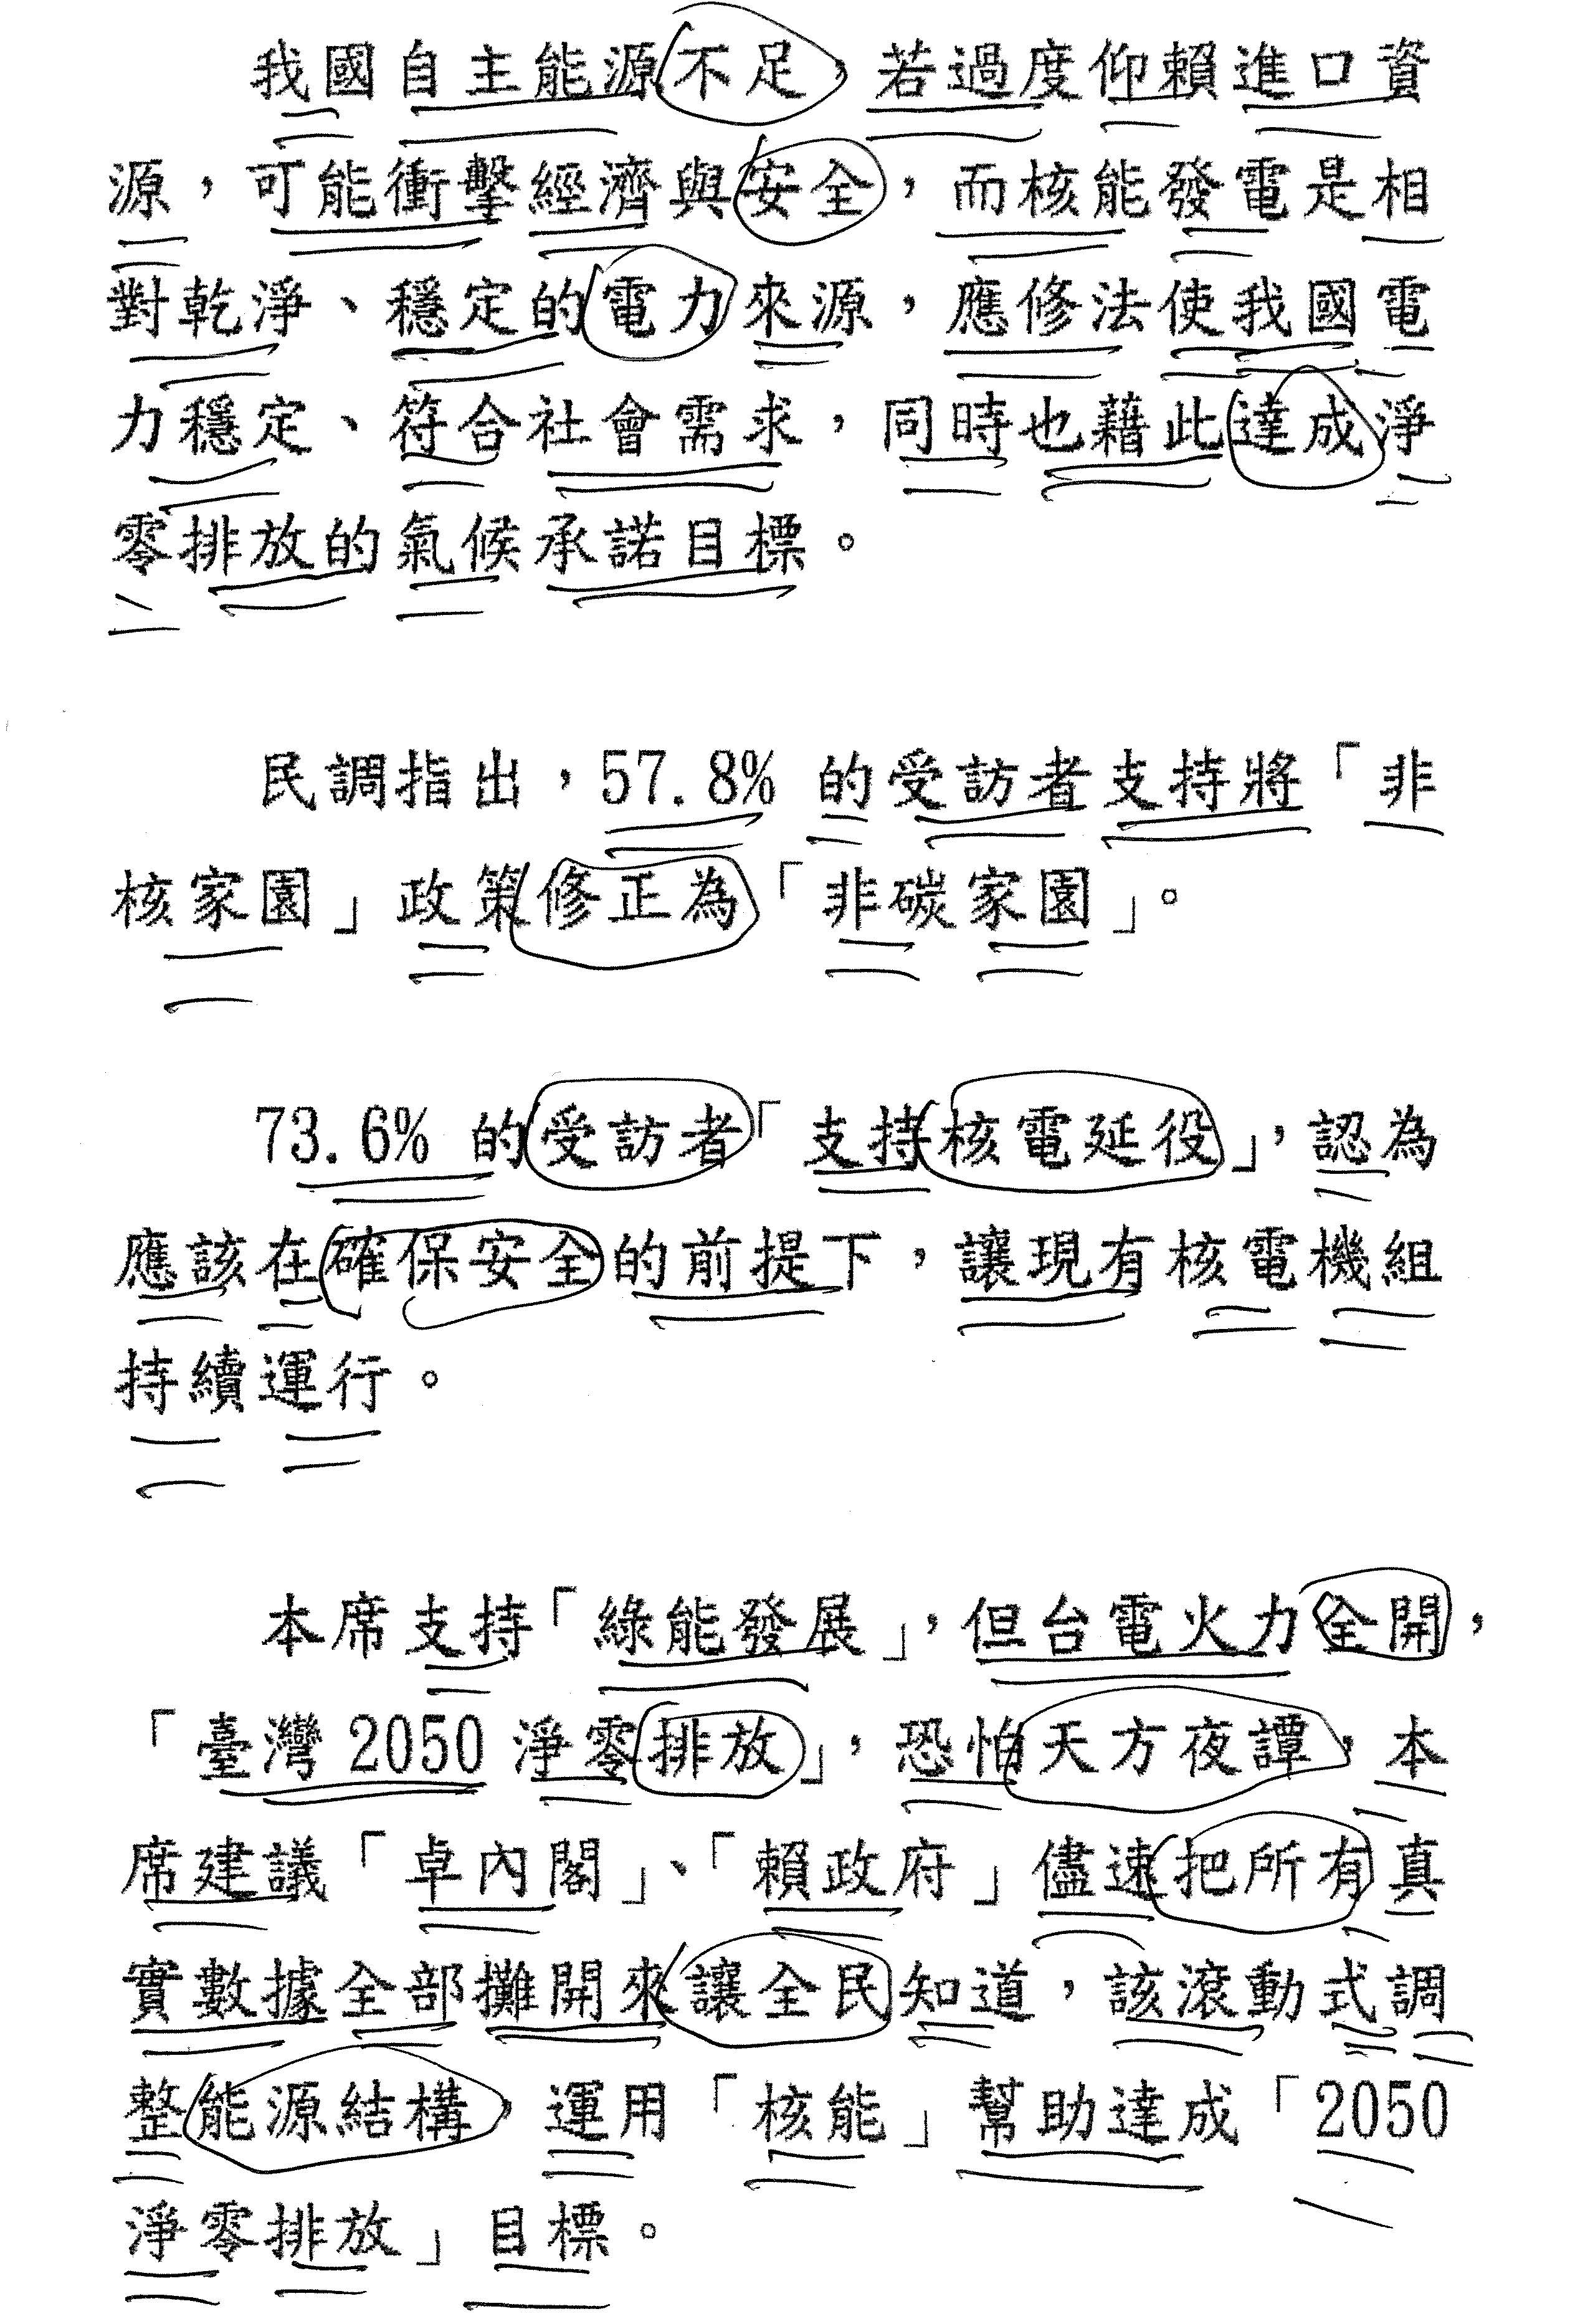 我國自主能源不足,若過度仰賴進口資
源,可能衝擊經濟與安全,而核能發電是相
對乾淨、穩定的電力來源,應修法使我國電
力穩定、符合社會需求,同時也藉此達成淨
零排放的氣候承諾目標。
民調指出,57.8% 的受訪者支持將「非
核家園」政策修正為「非碳家園」。
73.6% 的受訪者「支持核電延役」,認為
應該在確保安全的前提下,讓現有核電機組
持續運行。
本席支持「綠能發展」,但台電火力全開,
「臺灣 2050 淨零排放」,恐怕天方夜譚,本
席建議「卓內閣」、「賴政府」儘速把所有真
實數據全部攤開來讓全民知道,該滾動式調
整能源結構,運用「核能」幫助達成「2050
淨零排放」目標。